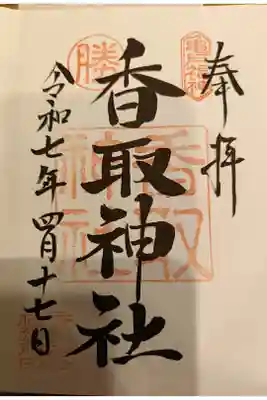 奉拝
香取神社
令和七年四月十七日
勝
香取
神社